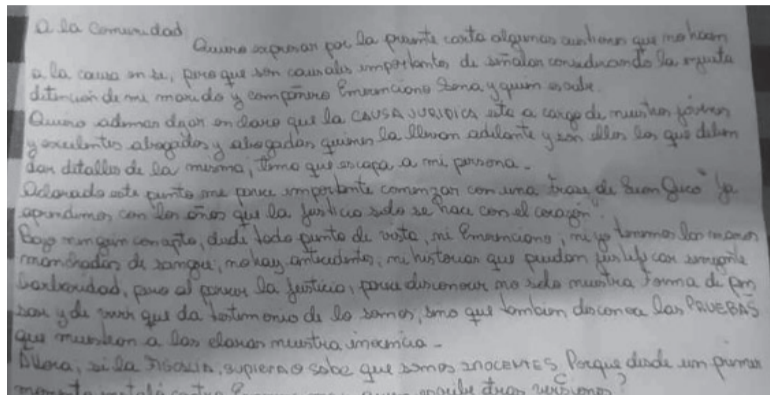 A la Comunidad
Quiero expresar por la presente carta algunas cuestiones que no hacen
a la causa en si, pero que son causales importantes de señalar considerando la injusta
detención de mi marido y compañero Emerenciano Sena, y quien escribe.
Quiero ademas dejar en claro que la CAUSA JURIDICA esta a cargo de nuestros jóvenes
y excelentes abogados y abogadas quienes la llevan adelante y son ellos los que deben
dar detalles de la misma, tema que escapa a mi persona.-
Aclarado este punto me parece importante comenzar con una frase de "ya
aprendimos con los años que la justicia solo se hace con el corazón".
Bajo ningun concepto, desde todo punto de vista, ni Emerenciano, ni yo tenemos las manos
manchadas de sangre, no hay antecedentes, ni historias que puedan justificar semejante
barbaridad, pero al parecer la justicia, parece desconocer no solo nuestra forma de pen
sar y de vivir que da testimonio de lo somos, sino que tambien desconoce las PRUEBAS
que muestran a las claras nuestra inocencia.-
Ahora, si la FISCALIA, supiera o sabe que somos INOCENTES. Porque desde un primer
momento contra que escribe tres versiones?